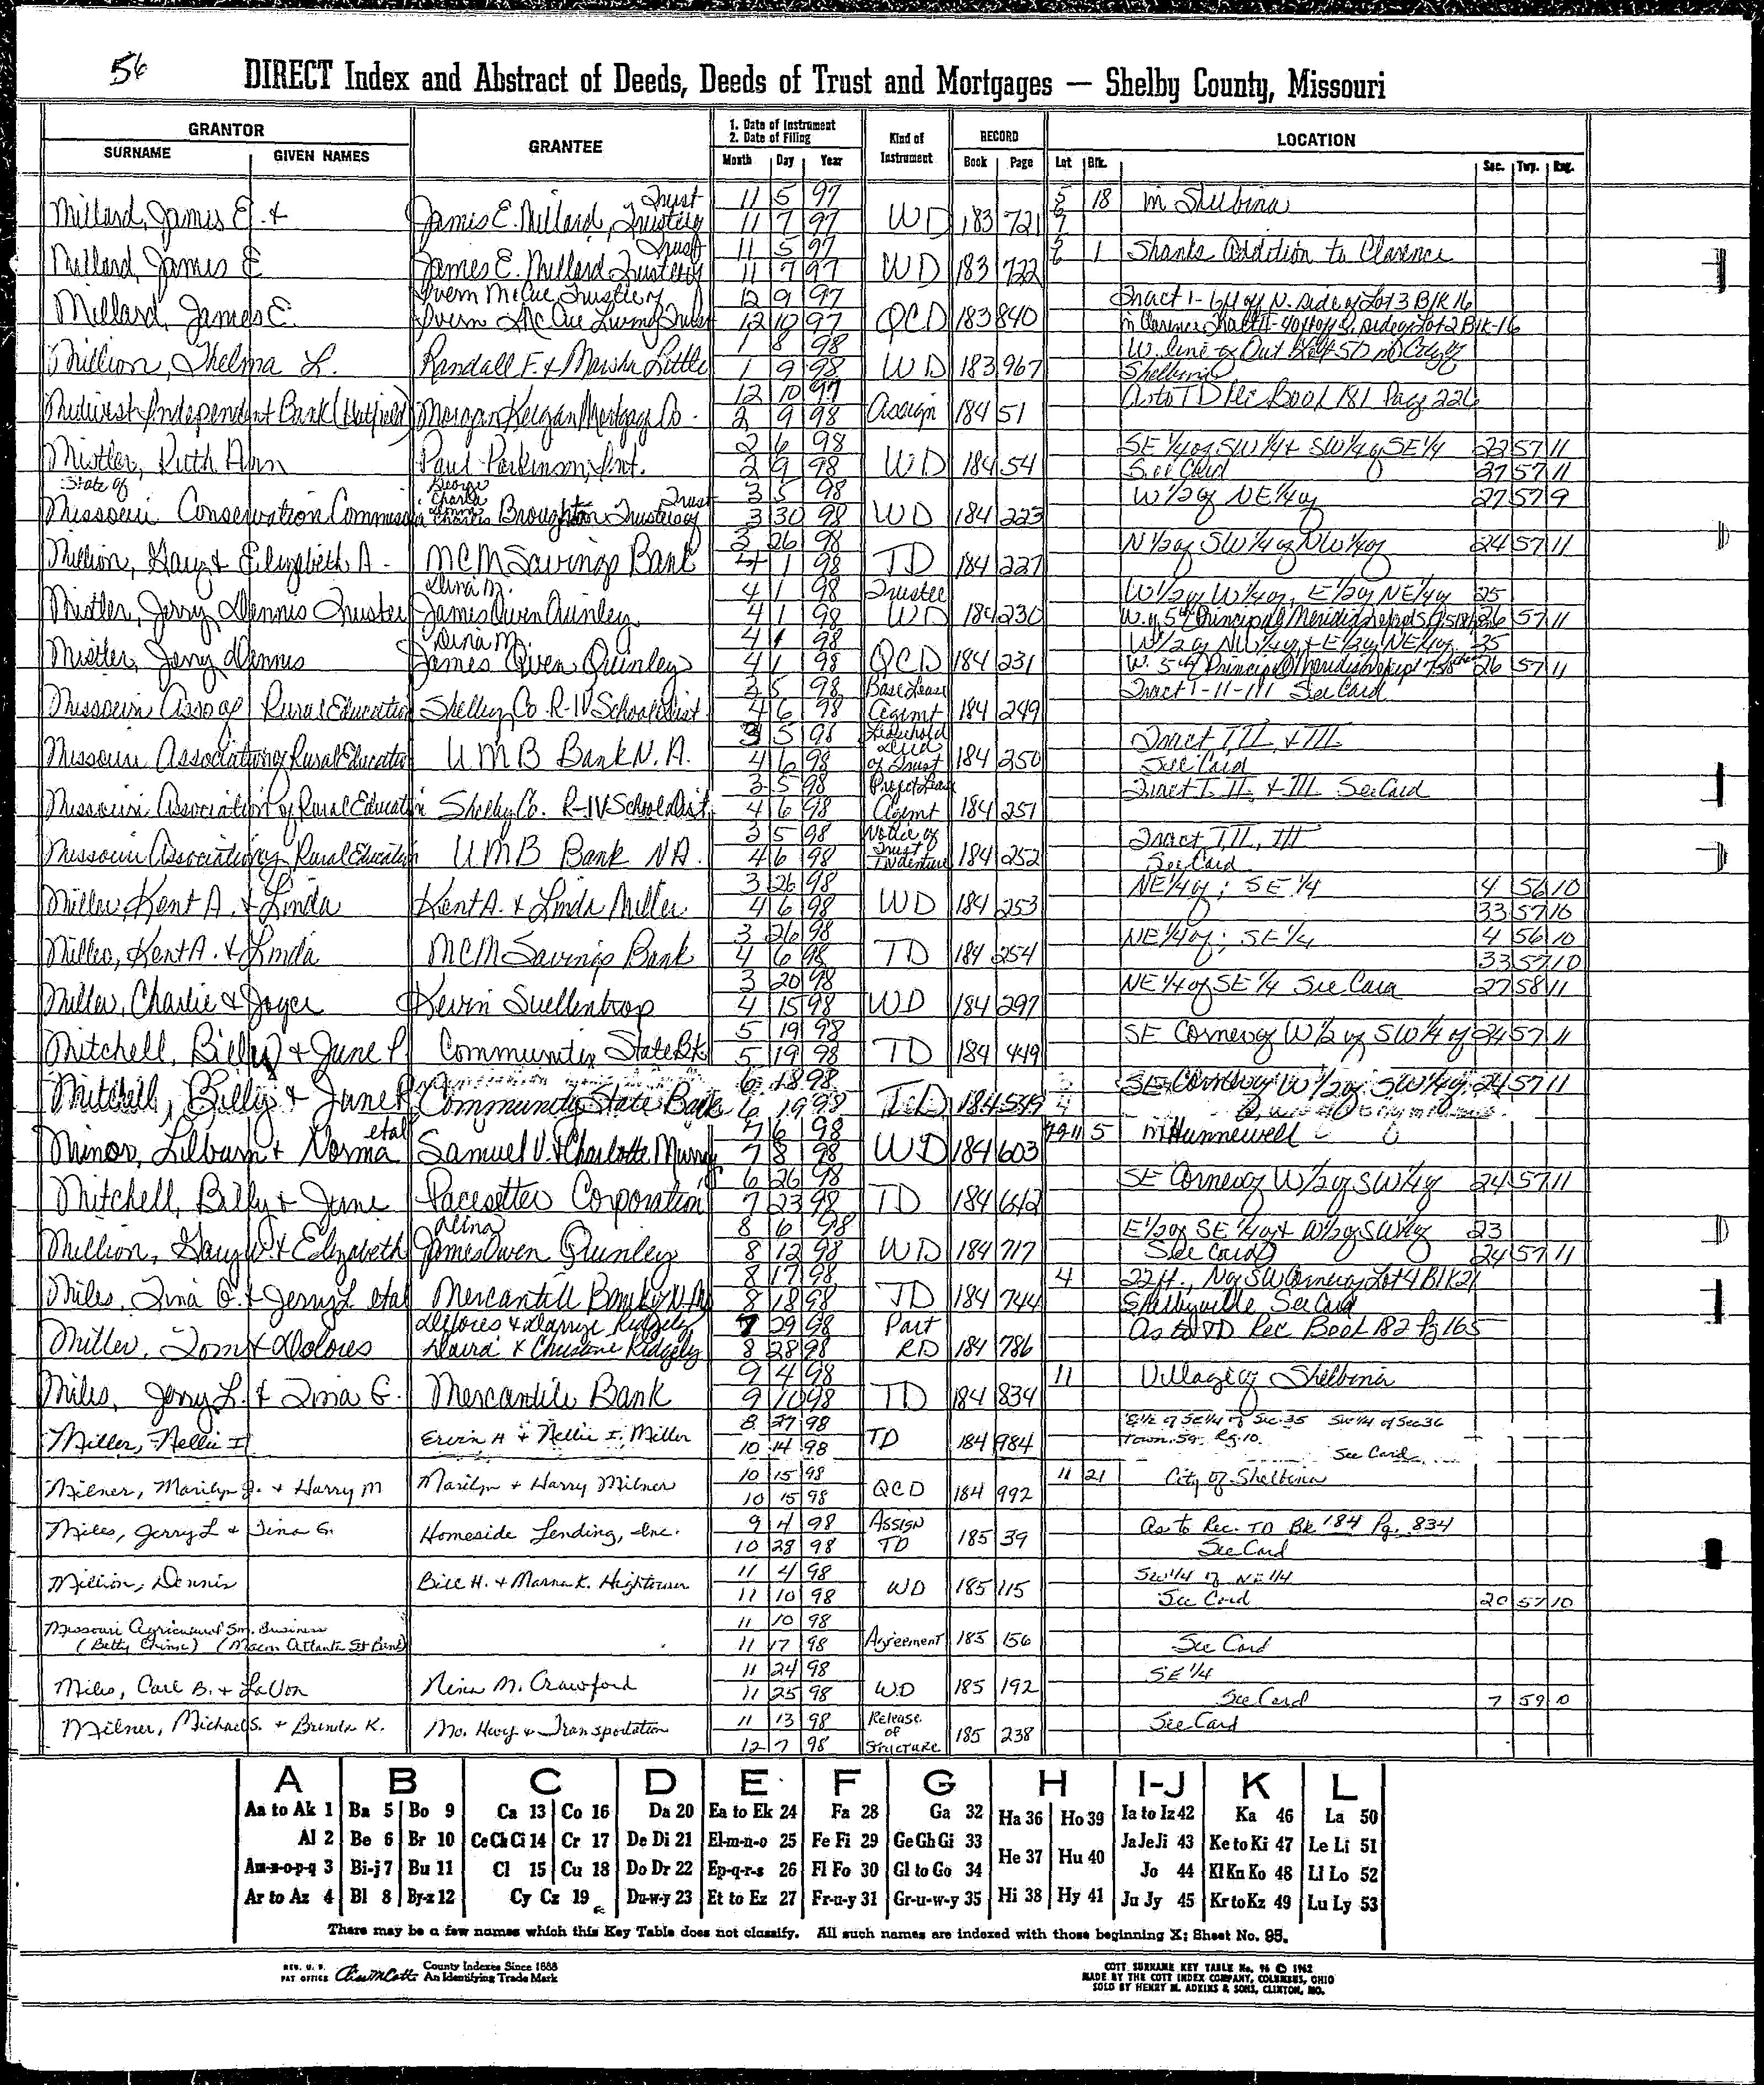 56
DIRECT Index and Abstract of Deeds, Deeds of Trust and Mortgages — Shelby County, Missouri
GRANTOR
SURNAME GIVEN NAMES
GRANTEE
1. Date of Instrument
2. Date of Filing
Month Day Year
Kind of Instrument
RECORD
Book Page
LOCATION
Lot Blk. Sec. Twp. Rng.
Trust 11 5 97 5 18 in Shelbina
Millard, James E. & James E. Millard, Trustee of 11 7 97 WD 183 721
Trust 11 5 97 1 Shanks Addition to Clarence
Millard, James E James E. Millard Trustee of 11 7 97 WD 183 722
Ivern McCue Trustee of 12 9 97 Tract 1- 64 of N. side of Lot 3 Blk 16
Millard, James E. Ivern McCue Living Trust 12 10 97 QCD 183 840 in Clarence
1 8 98 W. line of Out
Million, Thelma L. Randall F. & Marsha Little 1 9 98 WD 183 967 Shelbina
12 10 97 As to TD Rec Book 181 Page 226
Midwest Independent Bank (Hatfield) Morgan Keegan Mortgage Co. 2 9 98 Assign 184 51
2 6 98 SE 1/4 of SW 1/4 & SW 1/4 of SE 1/4 22 57 11
Mistler, Ruth Ann Paul Parkinson, Int. 2 9 98 WD 184 54 See Card 27 57 11
State of George Charla Trust 3 5 98 W 1/2 of NE 1/4 of 27 57 9
Missouri Conservation Commission Charles Broughton Trustees of 3 30 98 WD 184 223
3 26 98 N 1/2 of SW 1/4 of NW 1/4 of 24 57 11
Million, Gary & Elizabeth A. MCM Savings Bank 4 1 98 TD 184 227
Dina M. 4 1 98 Trustee W 1/2 of W 1/4 of, E 1/2 of NE 1/4 of 25
Mistler, Jerry Dennis Trustee James Owen Quinley 4 1 98 WD 184 230 W. of 5th Principal Meridian 26 57 11
Dina M. 4 1 98 W 1/2 of NW 1/4 of & E 1/2 of NE 1/4 of 35
Mistler, Jerry Dennis James Owen Quinley 4 1 98 QCD 184 231 W. 5th Principal Meridian 26 57 11
3 5 98 Base Lease Tract I-II-III See Card
Missouri Asso of Rural Education Shelby Co. R-IV School Dist 4 6 98 Agemt 184 249
3 5 98 Leasehold Deed Tract I, II, & III
Missouri Association of Rural Education UMB Bank N.A. 4 6 98 of Trust 184 250 See Card
3 5 98 Project Lease Tract I, II, & III See Card
Missouri Association of Rural Education Shelby Co. R-IV School Dist. 4 6 98 Agemt 184 251
3 5 98 Notice of Trust Tract I, II, III
Missouri Association of Rural Education UMB Bank NA. 4 6 98 Indenture 184 252 See Card
3 26 98 NE 1/4 of; SE 1/4 4 56 10
Miller, Kent A. & Linda Kent A. & Linda Miller 4 6 98 WD 184 253 33 57 10
3 26 98 NE 1/4 of; SE 1/4 4 56 10
Miller, Kent A. & Linda MCM Savings Bank 4 6 98 TD 184 254 33 57 10
3 20 98 NE 1/4 of SE 1/4 See Card 27 58 11
Miller, Charlie & Joyce Kevin Suellentrop 4 15 98 WD 184 297
5 19 98 SE Corner of W 1/2 of SW 1/4 of 24 57 11
Mitchell, Billy & June P Community State Bk 5 19 98 TD 184 449
6 18 98 SE Corner of W 1/2 of SW 1/4 of 24 57 11
Mitchell, Billy & June P Community State Bank 6 19 98 TD 184 549
etal 7 6 98 7 9 11 5 in Hunnewell
Minor, Lilburn & Norma Samuel V. & Charlotte Murray 7 8 98 WD 184 603
6 26 98 SE Corner of W 1/2 of SW 1/4 of 24 57 11
Mitchell, Billy & June Pacesetter Corporation 7 23 98 TD 184 642
Dina 8 6 98 E 1/2 of SE 1/4 of & W 1/2 of SW 1/4 of 23
Million, Gary W. & Elizabeth James Owen Quinley 8 12 98 WD 184 717 See Card 24 57 11
8 17 98 4 22 ft., N of SW Corner of Lot 4 Blk 21
Miles, Tina G. & Jerry L etal Mercantile Bank of N.A. 8 18 98 TD 184 744 Shelbyville See Card
Delores & Darryl Ridgely 7 29 98 Part As to TD Rec Book 182 Pg 165
Miller, Tom & Dolores David & Christine Ridgely 8 28 98 RD 184 786
9 4 98 11 Village of Shelbina
Miles, Jerry L. & Tina G. Mercantile Bank 9 10 98 TD 184 834
8 27 98 E 1/2 of SE 1/4 of Sec 35 SW 1/4 of Sec 36
Miller, Nellie I Ervin H & Nellie I. Miller 10 14 98 TD 184 984 Town. 59 Rg. 10. See Card
10 15 98 11 21 City of Shelbina
Milner, Marilyn J. & Harry M Marilyn & Harry Milner 10 15 98 QCD 184 992
9 4 98 Assign As to Rec. TD Bk 184 Pg. 834
Miles, Jerry L & Tina G. Homeside Lending, Inc. 10 28 98 TD 185 39 See Card
11 4 98 SW 1/4 of NE 1/4
Million, Dennis Bill H. & Marna K. Hightower 11 10 98 WD 185 115 See Card 20 57 10
Missouri Agricultural Sm. Business 11 10 98
(Betty Grime) (Macon Atlanta St Bank) 11 17 98 Agreement 185 156 See Card
11 24 98 SE 1/4
Miles, Carl B. & LaVon Nina M. Crawford 11 25 98 WD 185 192 See Card 7 59 10
Milner, Michael S. & Brenda K. Mo. Hwy & Transportation 11 13 98 Release of See Card
12 7 98 Structure 185 238
A B C D E F G H I-J K L
Aa to Ak 1 Ba 5 Bo 9 Ca 13 Co 16 Da 20 Ea to Ek 24 Fa 28 Ga 32 Ha 36 Ho 39 Ia to Iz 42 Ka 46 La 50
Al 2 Be 6 Br 10 Ce Ch Ci 14 Cr 17 De Di 21 El-m-n-o 25 Fe Fi 29 Ge Gh Gi 33 He 37 Hu 40 Ja Je Ji 43 Ke to Ki 47 Le Li 51
Am-n-o-p-q 3 Bi-j 7 Bu 11 Cl 15 Cu 18 Do Dr 22 Ep-q-r-s 26 Fl Fo 30 Gl to Go 34 Jo 44 Kl Kn Ko 48 Ll Lo 52
Ar to Az 4 Bl 8 By-z 12 Cy Cz 19 Du-w-y 23 Et to Ez 27 Fr-u-y 31 Gr-u-w-y 35 Hi 38 Hy 41 Ju Jy 45 Kr to Kz 49 Lu Ly 53
There may be a few names which this Key Table does not classify. All such names are indexed with those beginning X; Sheet No. 95.
REG. U. S. PAT OFFICE County Indexes Since 1888 An Identifying Trade Mark
COTT SURNAME KEY TABLE No. 96 © 1962
MADE BY THE COTT INDEX COMPANY, COLUMBUS, OHIO
SOLD BY HENRY M. ADKINS & SONS, CLINTON, MO.